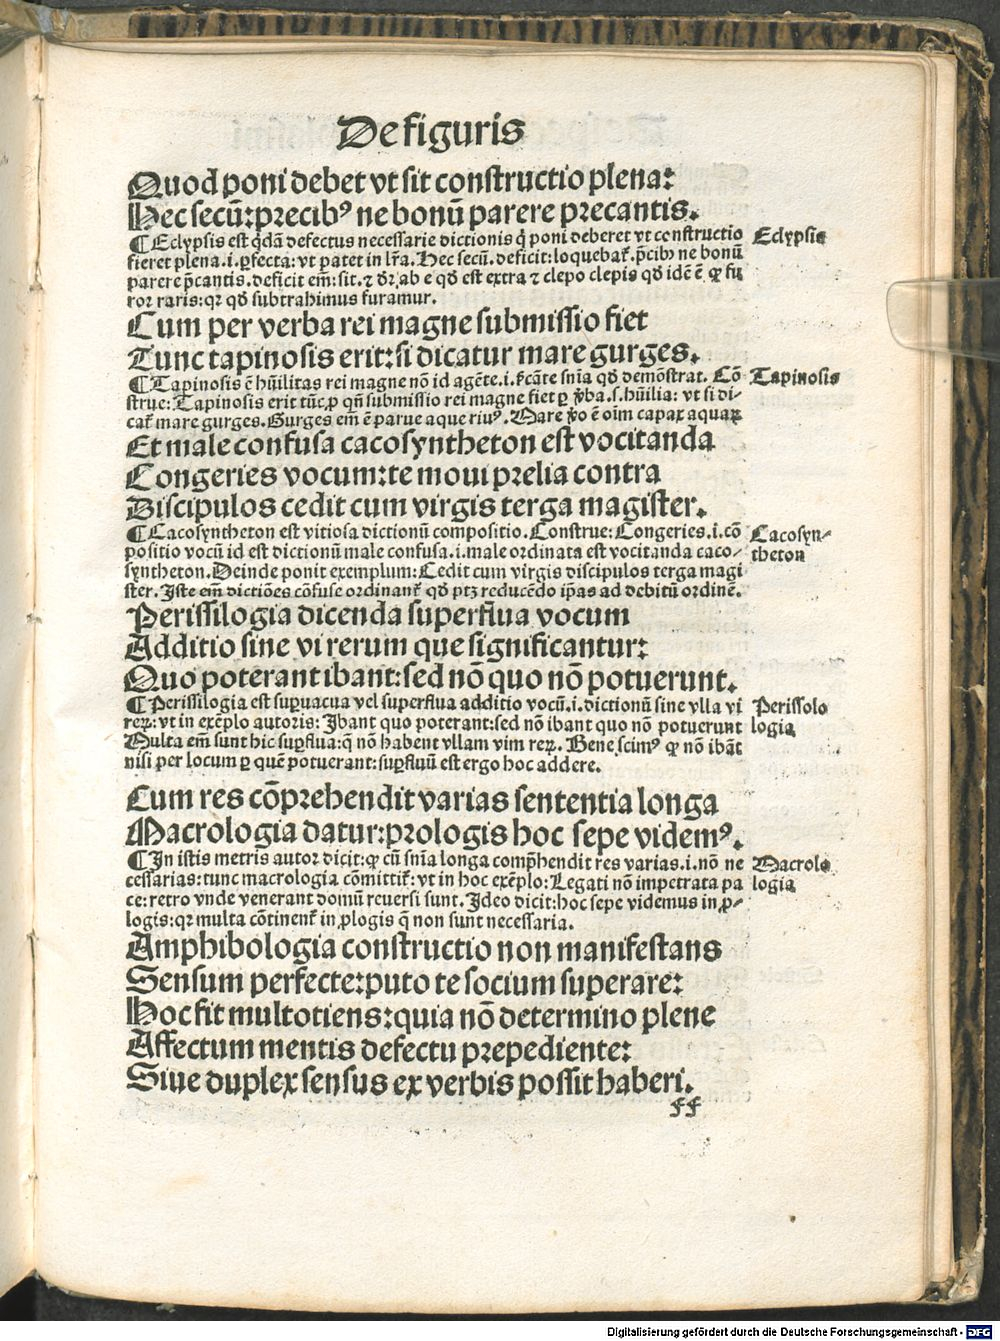 De figuris
Quod poni debet vt sit constructio plena:
Hec secū: precibꝰ ne bonū parere precantis.
¶ Eclypsis est q̄dā defectus necessarie dictionis q̄ poni deberet vt constructio
fieret plena .i. ꝑfecta: vt patet in lr̄a. Hec secū. deficit: loquebat᷑. p̄cibꝰ ne bonū
parere p̄cantis. deficit em̄: sit. ⁊ dr̄ ab e qd̄ est extra ⁊ clepo clepis qd̄ idē ē ꝙ fu
ror raris: qr qd̄ subtrahimus furamur.
Eclypsis
Cum per verba rei magne submissio fiet
Tunc tapinosis erit: si dicatur mare gurges.
¶ Tapinosis ē hūilitas rei magne nō id agēte .i. sīcāte sn̄ia qd̄ demōstrat. Cō
strue: Tapinosis erit tūc, ꝓ qn̄ submissio rei magne fiet ꝑ v̄ba .s. hūilia: vt si di-
cat᷑ mare gurges. Gurges em̄ ē parue aque riuꝰ. Mare v̄o ē oīm capax aquaꝝ
Tapinosis
Et male confusa cacosyntheton est vocitanda
Congeries vocum: te moui prelia contra
Discipulos cedit cum virgis terga magister.
¶ Cacosyntheton est vitiosa dictionū compositio. Construe: Congeries .i. cō
positio vocū id est dictionū male confusa .i. male ordinata est vocitanda caco-
syntheton. Deinde ponit exemplum: Cedit cum virgis discipulos terga magi
ster. Iste em̄ dictiōes cōfuse ordinant᷑ qd̄ ptꝫ reducēdo ip̄as ad debitū ordinē.
Cacosyn-
theton
Perissilogia dicenda superflua vocum
Additio sine vi rerum que significantur:
Quo poterant ibant: sed nō quo nō potuerunt.
¶ Perissilogia est suꝑuacua vel superflua additio vocū .i. dictionū sine vlla vi
reꝝ: vt in exēplo autoris: Ibant quo poterant: sed nō ibant quo nō potuerunt
Multa em̄ sunt hic suꝑflua: q̄ nō habent vllam vim reꝝ. Bene scimꝰ ꝙ nō ibāt
nisi per locum ꝑ quē potuerant: suꝑfluū est ergo hoc addere.
Perissolo
logia
Cum res cōprehendit varias sententia longa
Macrologia datur: prologis hoc sepe videmꝰ.
¶ In istis metris autor dicit: ꝙ cū sn̄ia longa comp̄hendit res varias .i. nō ne
cessarias: tunc macrologia cōmittit᷑: vt in hoc exēplo: Legati nō impetrata pa
ce: retro vnde venerant domū reuersi sunt. Ideo dicit: hoc sepe videmus in ꝓ-
logis: qr multa cōtinent᷑ in ꝓlogis q̄ non sunt necessaria.
Macrolo
logia
Amphibologia constructio non manifestans
Sensum perfecte: puto te socium superare:
Hoc fit multotiens: quia nō determino plene
Affectum mentis defectu prepediente:
Siue duplex sensus ex verbis possit haberi.
ff
Digitalisierung gefördert durch die Deutsche Forschungsgemeinschaft - DFG